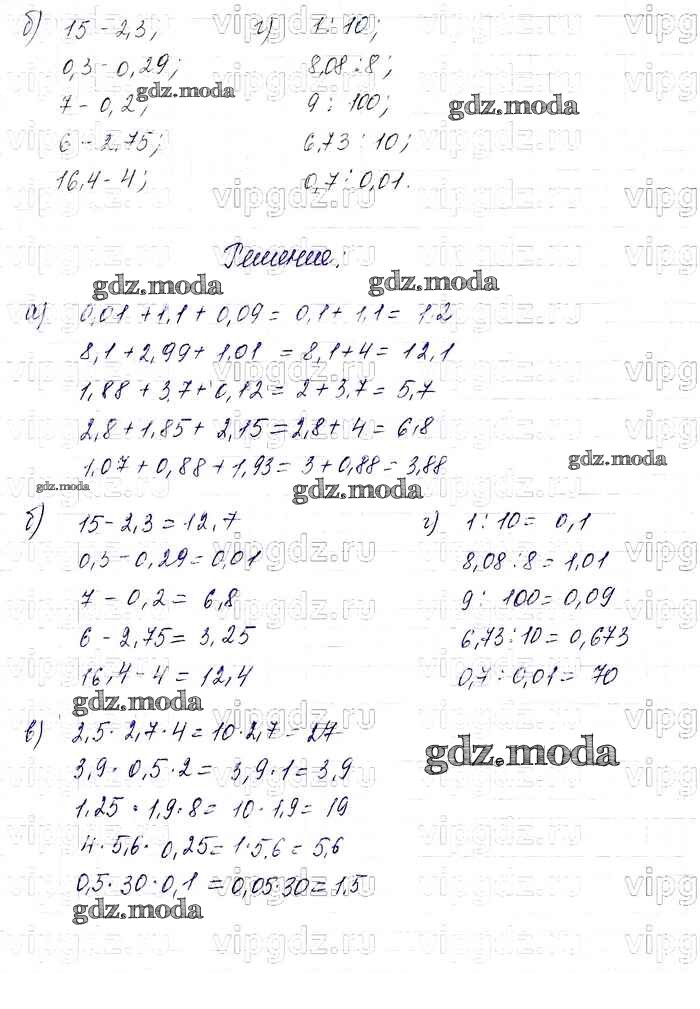 б) 15 - 2,3; г) 1 : 10;
0,3 - 0,29; 8,08 : 8;
gdz.moda
7 - 0,2; 9 : 100;
gdz.moda
6 - 2,75; 6,73 : 10;
16,4 - 4; 0,7 : 0,01.
vipgdz.ru
Решение.
gdz.moda gdz.moda
а) 0,01 + 1,1 + 0,09 = 0,1 + 1,1 = 1,2
8,1 + 2,99 + 1,01 = 8,1 + 4 = 12,1
1,88 + 3,7 + 0,12 = 2 + 3,7 = 5,7
2,8 + 1,85 + 2,15 = 2,8 + 4 = 6,8
1,07 + 0,88 + 1,93 = 3 + 0,88 = 3,88
gdz.moda
gdz.moda gdz.moda
б) 15 - 2,3 = 12,7 г) 1 : 10 = 0,1
0,3 - 0,29 = 0,01 8,08 : 8 = 1,01
7 - 0,2 = 6,8 9 : 100 = 0,09
6 - 2,75 = 3,25 6,73 : 10 = 0,673
16,4 - 4 = 12,4 0,7 : 0,01 = 70
gdz.moda
в) 2,5 · 2,7 · 4 = 10 · 2,7 = 27
gdz.moda
3,9 · 0,5 · 2 = 3,9 · 1 = 3,9
1,25 · 1,9 · 8 = 10 · 1,9 = 19
4 · 5,6 · 0,25 = 1 · 5,6 = 5,6
0,5 · 30 · 0,1 = 0,05 · 30 = 1,5
gdz.moda
vipgdz.ru